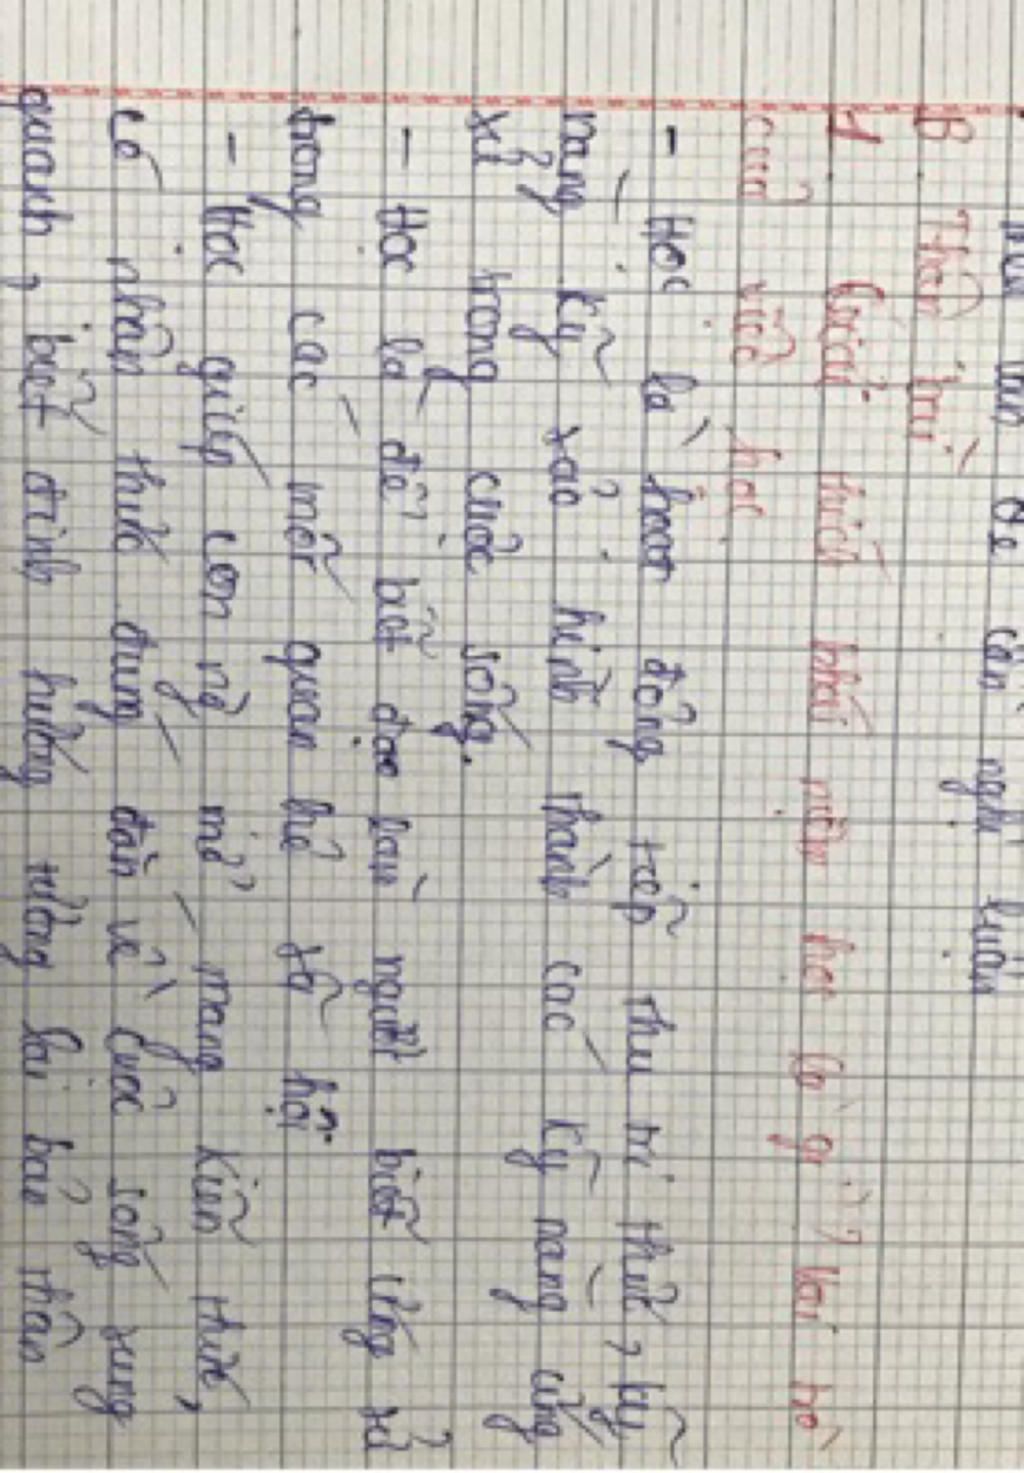 vấn đề cần nghị luận
B. Thân bài
1. Giải thích khái niệm học là gì? Vai trò
của việc học
- Học là hoạt động tiếp thu tri thức, kỹ
năng kỹ xảo, hình thành các kỹ năng ứng
xử trong cuộc sống.
- Học là để biết đạo làm người biết ứng xử
trong các mối quan hệ xã hội
- Học giúp con ng mở mang kiến thức,
có nhận thức đúng đắn về cuộc sống xung
quanh, biết định hướng tương lai bản thân